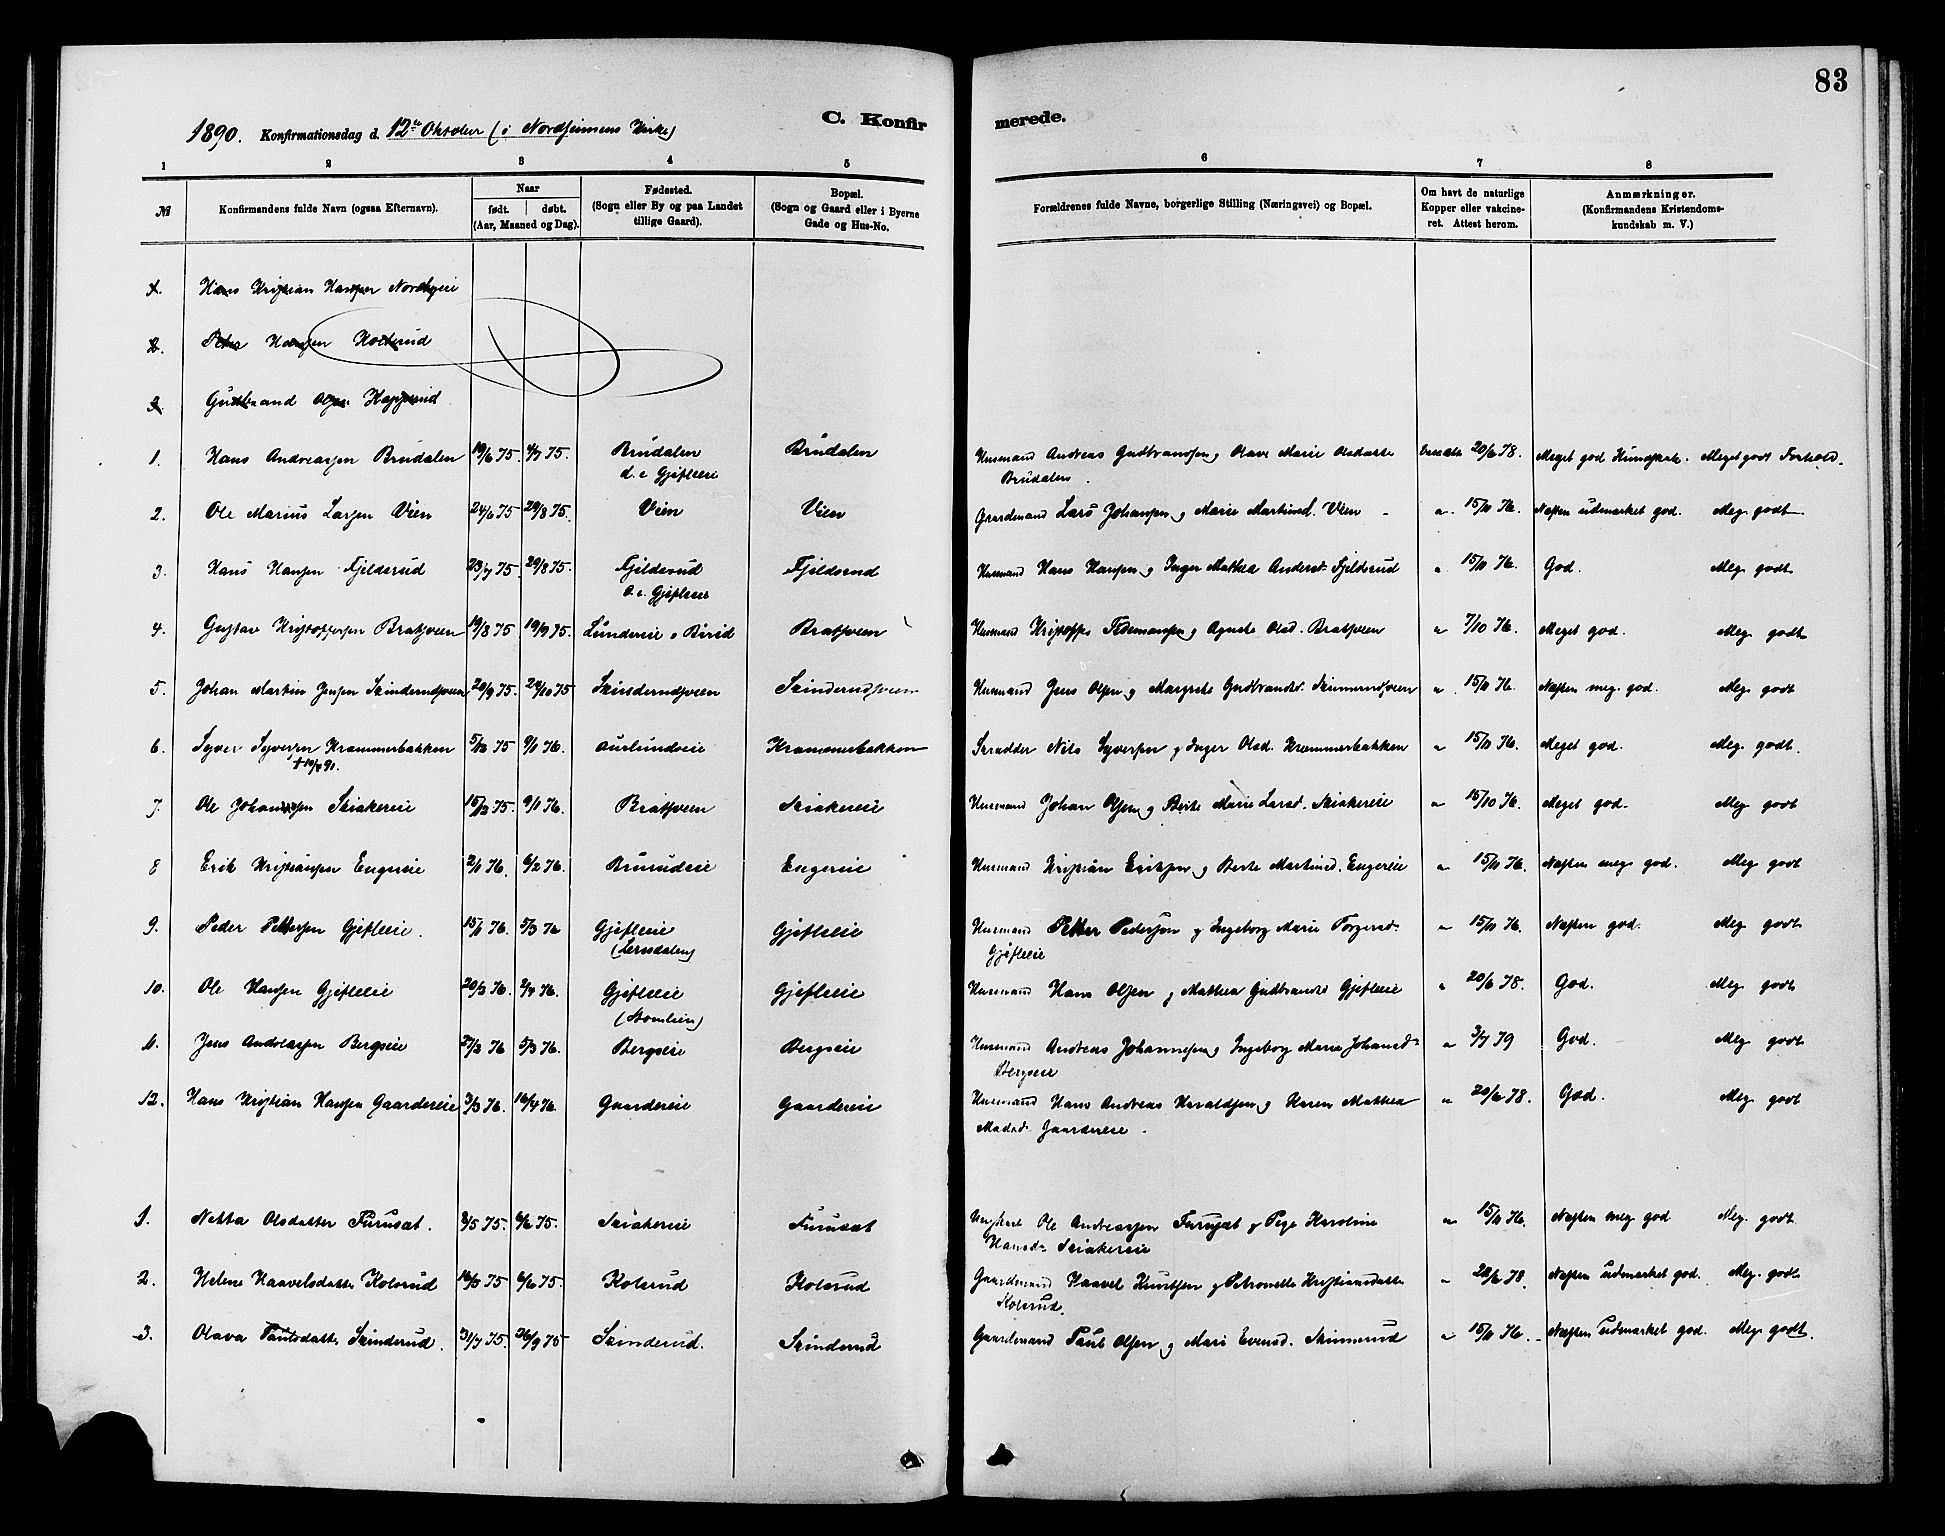 83
1890. Konfirmationsdag d. 12te Oktober (i Nordsinnens Kirke)
C. Konfir
merede.
1 2 3 4 5 6 7 8
№
Konfirmandens fulde Navn (ogsaa Efternavn).
Naar
født. | døbt.
(Aar, Maaned og Dag).
Fødested.
(Sogn eller By og paa Landet
tillige Gaard).
Bopæl.
(Sogn og Gaard eller i Byerne
Gade og Hus-No.
Forældrenes fulde Navne, borgerlige Stilling (Næringsvei) og Bopæl.
Om havt de naturlige
Kopper eller vakcine-
ret. Attest herom.
Anmærkninger.
(Konfirmandens Kristendoms-
kundskab m. V.)
1. Hans Kristian Hansen
2. Hansen
3. Gudbrand Olsen
1. Hans Andreassen Brudalen 19/6 75. 4/7 75. Brudalen Brudalen Husmand Andreas Gudbrandsen og Olave Marie Olsdatter 20/6 78. Meget god Kundskab. Meget godt Forhold.
d. e Gjefleeie
Brudalen.
2. Ole Marius Larsen Vien 24/6 75 29/8 75. Vien Vien Gaardmand Lars Johansen og Marie Martinsd. Vien " 15/11 76. Næsten udmærket god. Meg. godt
3. Hans Hansen Fjeldsrud 23/7 75. 29/8 75. Fjeldsrud Fjeldsrud Husmand Hans Hansen og Inger Mathea Andersd. Fjeldsrud " 15/11 76. God. Meg godt
d. e. Gjefleeie
4. Gustav Kristoffersen Bratsveen 19/8 75 19/9 75. Lundereie i Birid Bratsveen Husmand Kristoffer Tidemansen og Agnete Olsd. Bratsveen " 7/10 76. Meget god. Meg godt
5. Johan Martin Jensen Skinderudsveen 20/9 75. 24/10 75 Skinderudsveen Skinderudsveen Husmand Jens Olsen og Margrete Gudbrandsd. Skinnerudsveen " 15/11 76. Næsten meg. god. Meg godt
6. Syver Syversen Krammerbakken 5/12 75 9/1 76. Aurlundeie Krammerbakken Skrædder Nils Syversen og Inger Olsd. Krammerbakken " 15/11 76. Meget god. Meg. godt.
7. Ole Johansen Skiakereie 15/12 75. 9/1 76. Bratsveen Skiakereie Husmand Johan Olsen og Berte Marie Larsd. Skiakereie " 15/10 76. Meget god. Meg godt
8 Erik Kristiansen Engereie 2/1 76. 6/2 76. Brurudeie Engereie Husmand Kristian Eriksen og Berte Martinsd. Engereie " 15/11 76. Næsten meg. god. Meg godt
9. Peder Pettersen Gjefleeie. 15/1 76. 5/3 76 Gjefleeie Gjefleeie Husmand Petter Pedersen og Ingeborg Marie Torgersd. " 15/11 76. Næsten god. Meg godt
Gjefleeie
10. Ole Hansen Gjefleeie 20/2 76. 2/4 76. Gjefleeie Gjefleeie Husmand Hans Olsen og Mathea Gudbrandsd. Gjefleeie " 20/6 78. God. Meg godt
11. Jens Andreassen Bergseie 27/2 76 5/3 76. Bergseie Bergseie Husmand Andreas Johannesen og Ingeborg Marie Johansd. " 3/7 79 God. Meg godt
Bergseie
12. Hans Kristian Hansen Gaardereie 3/3 76. 16/4 76. Gaardereie Gaardereie Husmand Hans Andreas Haraldsen og Karen Mathea " 20/6 78. God. Meg godt
Madsd. Gaardereie.
1. Netta Olsdatter Furusæt. 2/5 75. 6/6 75. Skiakereie Furusæt Ole Andreassen Furusæt og Karoline " 15/11 76. Næsten meg god Meg. godt
Hansd. Skiakereie
2. Helene Haavelsdatter Kolsrud 16/5 75 6/6 75. Kolsrud Kolsrud Gaardmand Haavel Knutsen og Petronelle Kristiansdatter " 20/6 78. Næsten udmærket god. Meg. godt
Kolsrud.
3. Olava Paulsdatter Skinderud. 31/7 75. 26/9 75 Skinderud. Skinderud Gaardmand Paul Olsen og Mari Evensd. Skinnerud " 15/11 76. Næsten udmærket god. Meg godt.